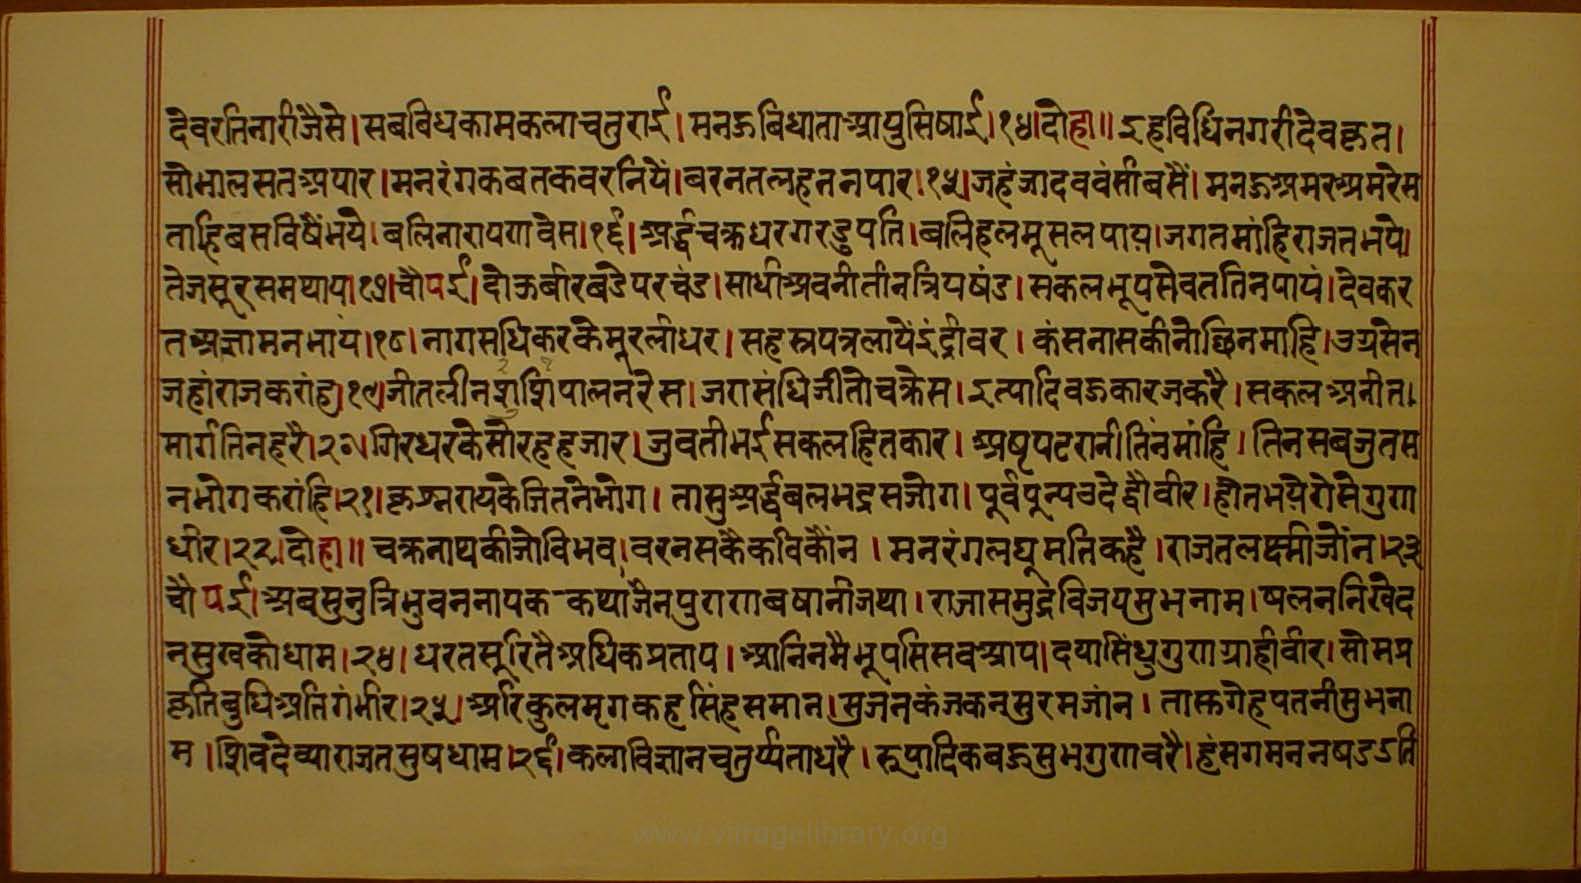 देवरतिनारीजैसे।सबविधकामकलाचतुराई।मनऊबिधाताआयुसिषाई।१४।दोहा॥इहविधिनगरीदेवकृत।
सोभालसतअपार।मनरंगकबतकवरनियें।बरनतलहतनपार।१५।जहंजादववंसीबसैं।मनऊअमरअमरेस
ताहिबसविषैंभये।बलिनारायणवेस।१६।अर्द्धचक्रधरगरडुपति।बलिहलमूसलपाय।जगतमांहिराजतभये।
तेजसूरसमथाय।१७।चौपई।दोऊबीरबडेपरचंड।साधीअवनीतीनत्रिपषंड।सकलभूपसेवततिनपायं।देवकर
तअज्ञामनभांय।१८।नागसधिकरकेमूरलीधर।सहस्रपत्रलायेंइंद्रीवर।कंसनासकीनोछिनमाहि।उग्रसेन
जहांराजकरांह।१९।जीतलीनशशिपालनरेस।जरासंधिजीतोचक्रेस।इत्यादिवऊकारजकरै।सकलअनीत।
मार्गतिनहरै।२०।गिरधरकेसोरहहजार।जुवतीभईसकलहितकार।अष्टपटरानीतिनंमांहि।तिनसबजुतम
नभोगकरांहि।२१।कृश्नरायकेजितनेभोग।तासुअर्द्धबलभद्रसजोग।पूर्वपून्यउदेद्वौवीर।हौतभयेगेसेगुणा
धीर।२२।दोहा॥चक्रनाथकीजोविभव।वरनसकैकविकौंन।मनरंगलघुमतिकहै।राजतलक्ष्मीजोंन।२३
चौपई।अबसुनुत्रिभुवननायककथा।जैनपुराणबषानीजथा।राजासमुद्रविजयसुभनाम।षलननिखेद
नसुखकोधाम।२४।धरतसूरितैअधिकप्रताप।आनिनमैभूपसिसवआप।दयासिंधुगुणग्राहीवीर।सोमप्र
कृतिबुधिअतिगंभीर।२५।अरिकुलमृगकहसिंहसमान।सुजनकंजकनसुरमजांन।तास्तगेहपतनीसुभना
म।शिवदेव्याराजतसुषधाम।२६।कलाविज्ञानचतुर्य्यताधरै।रूपादिकबऊसुभगुणवरै।हंसगमनन
www.viragelibrary.org